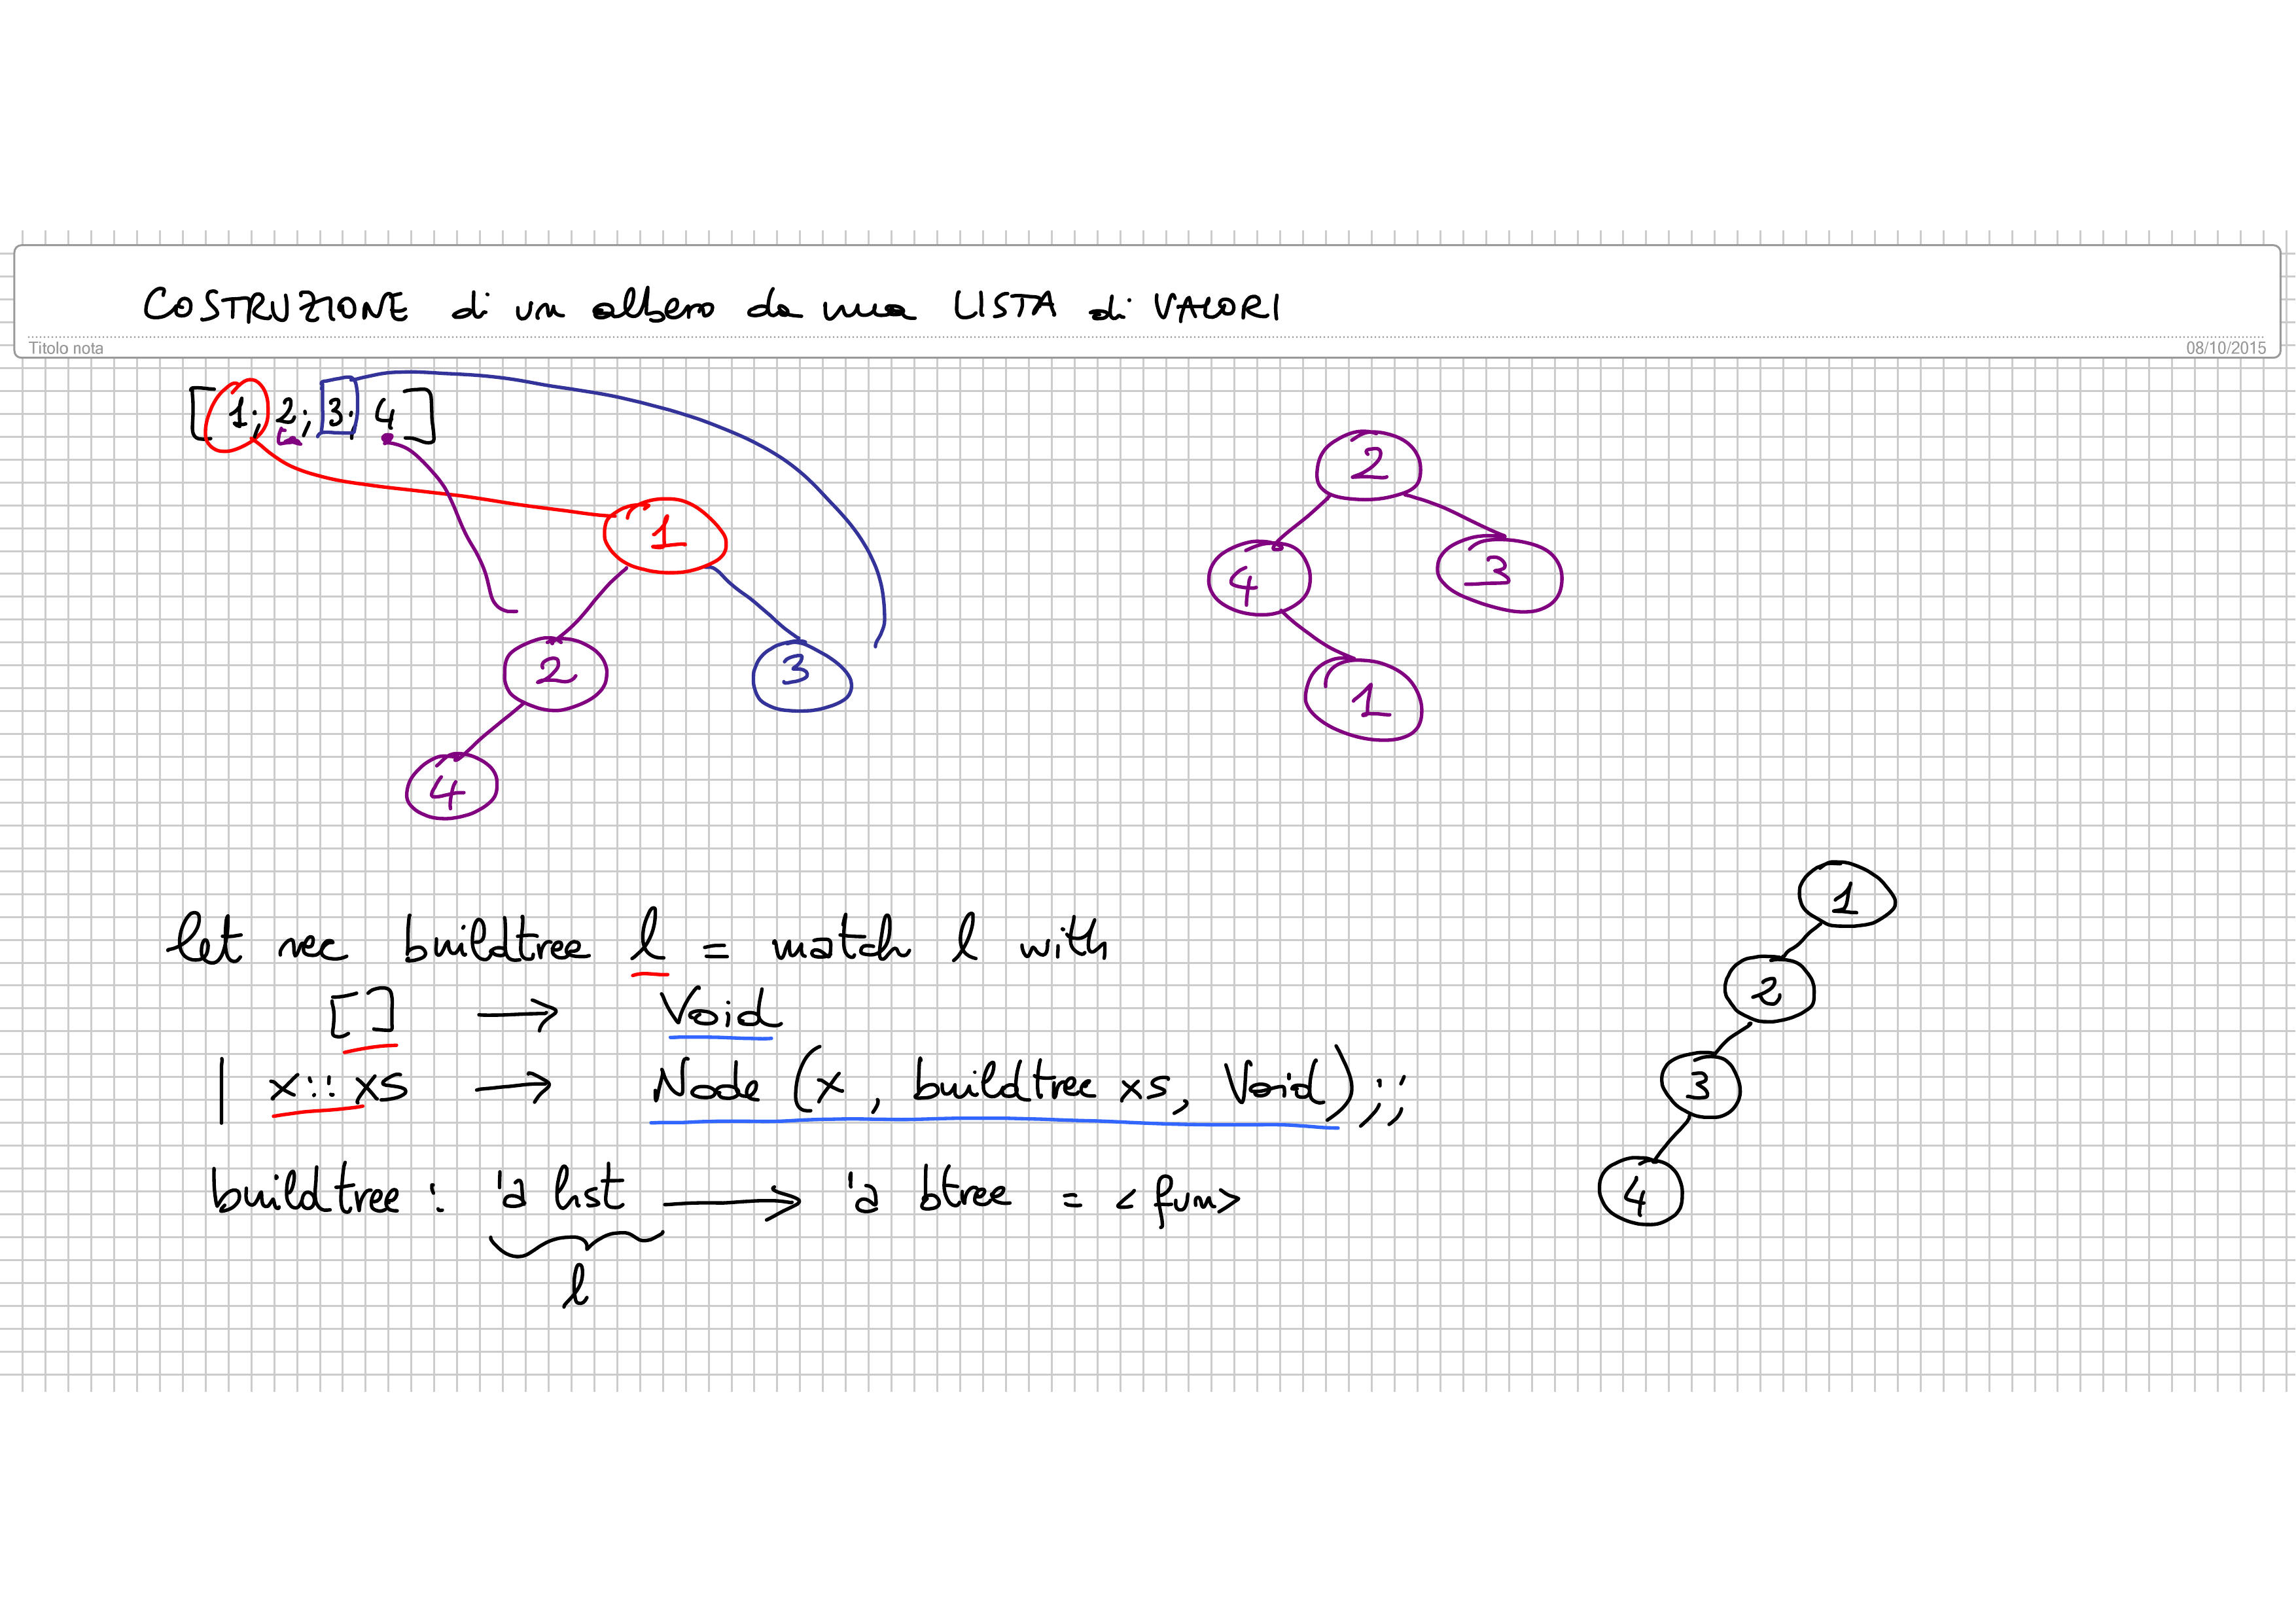 COSTRUZIONE di un albero da una LISTA di VALORI
Titolo nota
08/10/2015
[1; 2; 3; 4]
1
2
3
4
2
4
3
1
let rec buildtree l = match l with
[] → Void
| x::xs → Node (x, buildtree xs, Void);;
buildtree : 'a list → 'a btree = <fun>
l
1
2
3
4